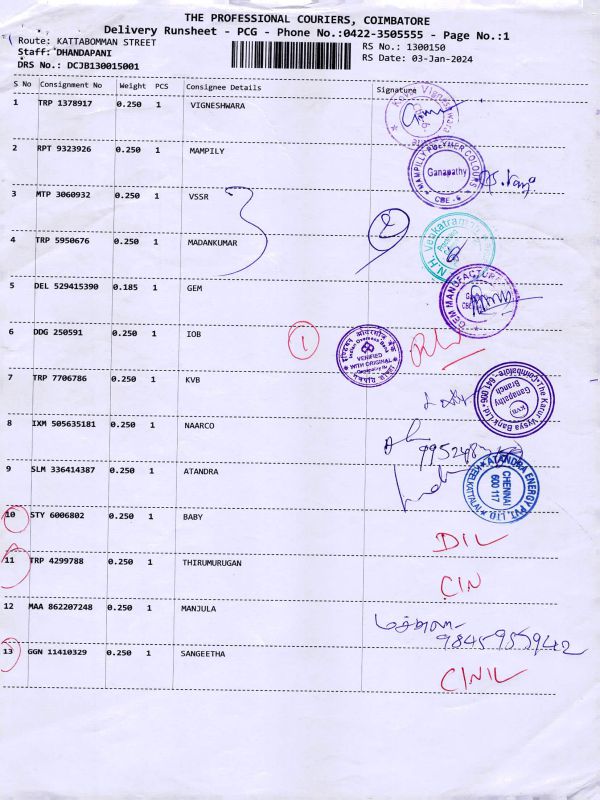 THE PROFESSIONAL COURIERS, COIMBATORE
Delivery Runsheet - PCG - Phone No.:0422-3505555 - Page No.:1
Route: KATTABOMMAN STREET
Staff: DHANDAPANI
DRS No.: DCJB130015001
RS No.: 1300150
RS Date: 03-Jan-2024
S No Consignment No Weight PCS Consignee Details Signature
1 TRP 1378917 0.250 1 VIGNESHWARA
2 RPT 9323926 0.250 1 MAMPILY
MAMPILLY POLYMER COLOURS Ganapathy CBE - 6
3 MTP 3060932 0.250 1 VSSR
3
2
4 TRP 5950676 0.250 1 MADANKUMAR
5 DEL 529415390 0.185 1 GEM
6 DDG 250591 0.250 1 IOB
1
Indian Overseas Bank VERIFIED WITH ORIGINAL
7 TRP 7706786 0.250 1 KVB
The Karur Vysya Bank Ltd. Ganapathy Branch KVB Coimbatore - 641 006
8 IXM 505635181 0.250 1 NAARCO
9 SLM 336414387 0.250 1 ATANDRA
ATANDRA ENERGY PVT. LTD. CHENNAI 600 117
10 STY 6006802 0.250 1 BABY
DIL
11 TRP 4299788 0.250 1 THIRUMURUGAN
CIN
12 MAA 862207248 0.250 1 MANJULA
13 GGN 11410329 0.250 1 SANGEETHA
CINIL